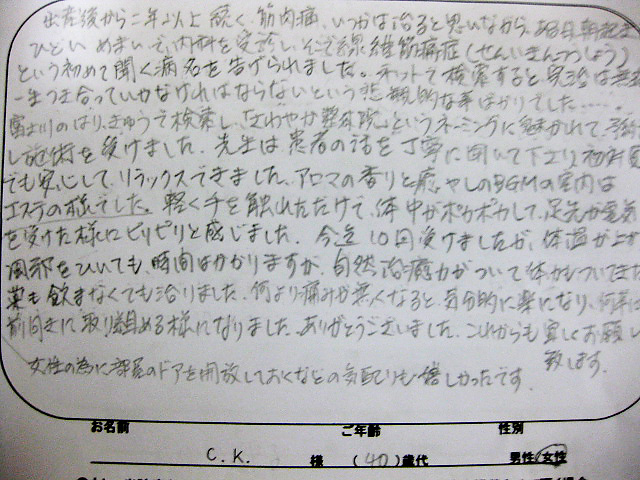 出産後から二年以上続く筋肉痛、いつかは治ると思いながら、ある日朝起き
ひどいめまいで、内科を受診し、そこで線維筋痛症（せんいきんつうしょう）
という初めて聞く病名を告げられました。ネットで検索すると完治は無
一生つき合っていかなければならないという悲観的な事ばかりでした……
富士川のはり、きゅうで検索し、「さわやか整体院」というネーミングに魅かれて、予約
し施術を受けました。先生は患者の話を丁寧に聞いて下さり、初対面
でも安心して、リラックスできました、アロマの香りと癒やしのBGMの室内は
エステの様でした。軽く手を触れただけで、体中がポカポカして、足先が電気
を受けた様にビリビリと感じました。今迄10回受けましたが、体温が上が
風邪をひいても、時間はかかりますが、自然治癒力がついて体力もついてきた
薬も飲まなくても治りました。何より痛みが無くなると、気分的に楽になり、何事に
前向きに取り組める様になりました、ありがとうございました。これからも宜しくお願い
致します。
女性の為に部屋のドアを開放しておくなどの気配りも嬉しかったです。
お名前 ご年齢 性別
C.K. 様 (40)歳代 男性/女性